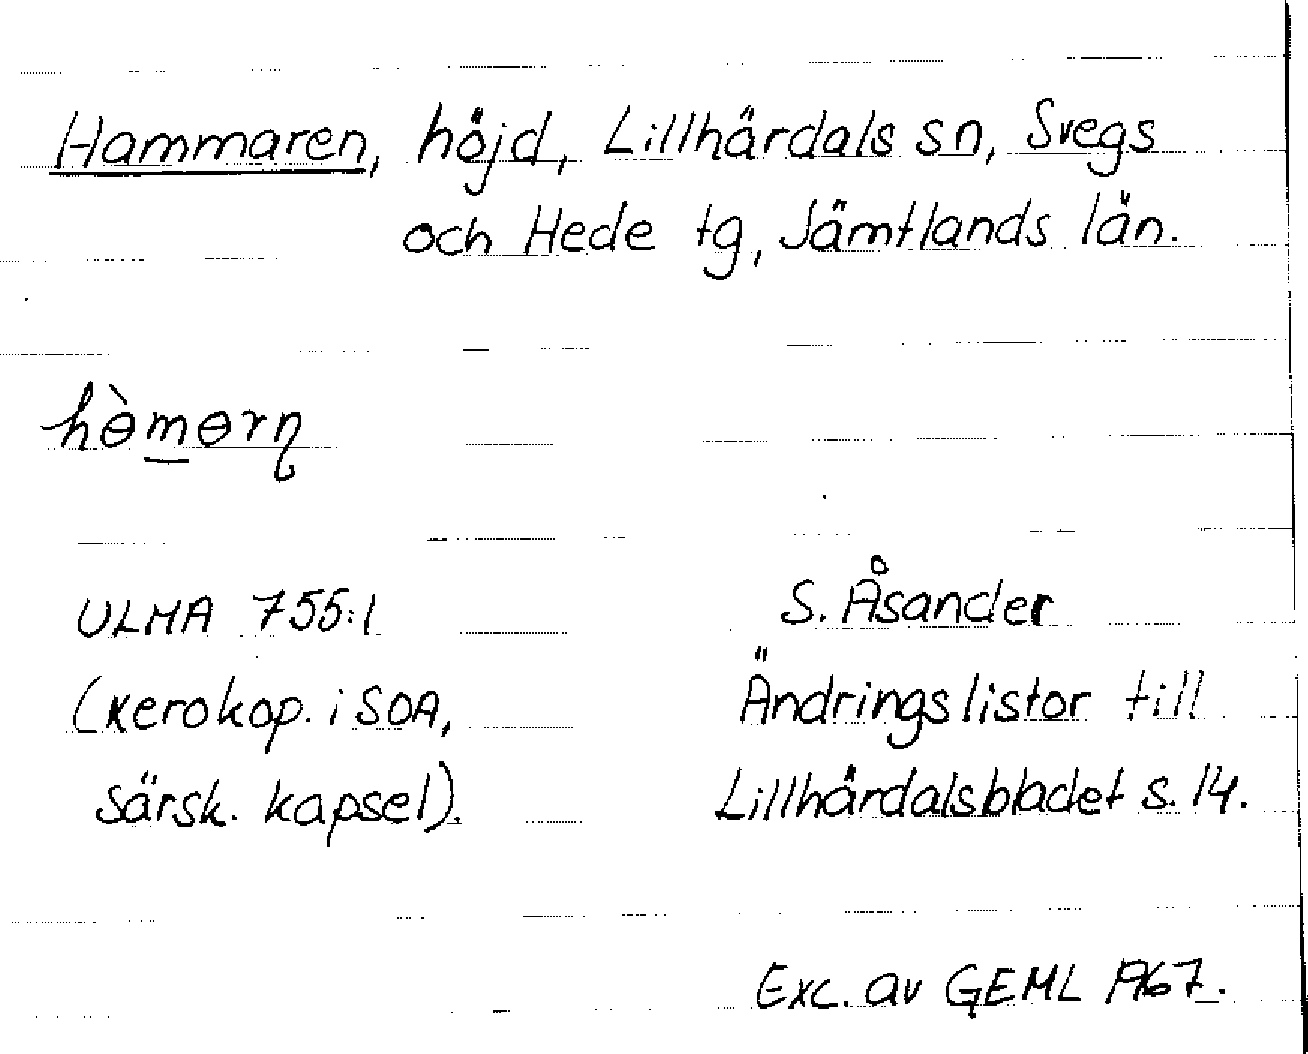 Hammaren, höjd, Lillhärdals sn, Svegs
och Hede tg, Jämtlands län.
hɵ̀m̲ɵrn̥
ULMA 755:1
(xerokop. i SOA,
särsk. kapsel).
S. Åsander
Ändringslistor till
Lillhärdalsbladet s. 14.
Exc. av GEML 1967.